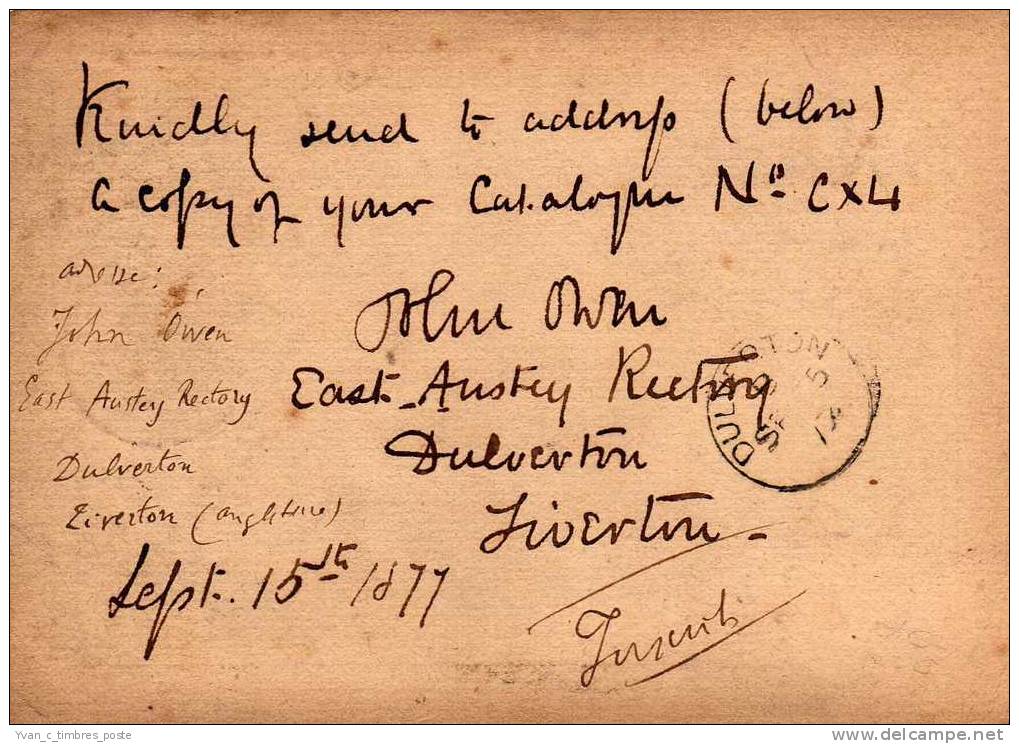 Kindly send to address (below)
a copy of your Catalogue No. CX4
John Owen
East-Anstey Rectory
Dulverton
Tiverton
Sept. 15th 1877
John Owen
East Anstey Rectory
Dulverton
Tiverton (angleterre)
DULVERTON
SE 15
77
Yvan_c_timbres_poste
www.delcampe.net